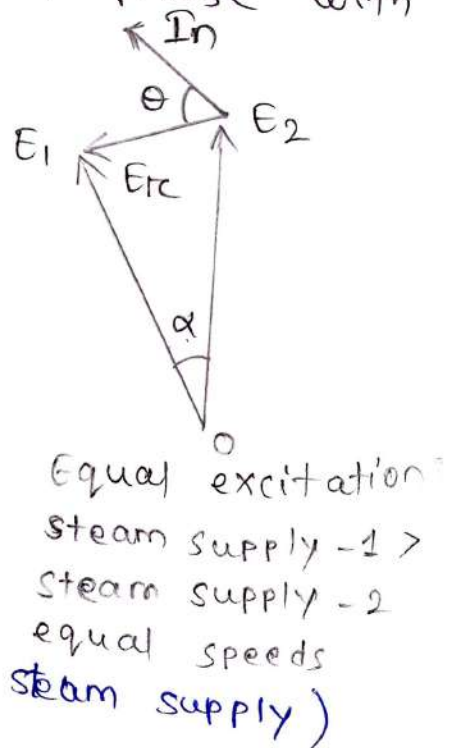 with
In
θ
E2
E1
Erc
α
O
Equal excitation
steam supply -1 >
steam supply - 2
equal speeds
steam supply)